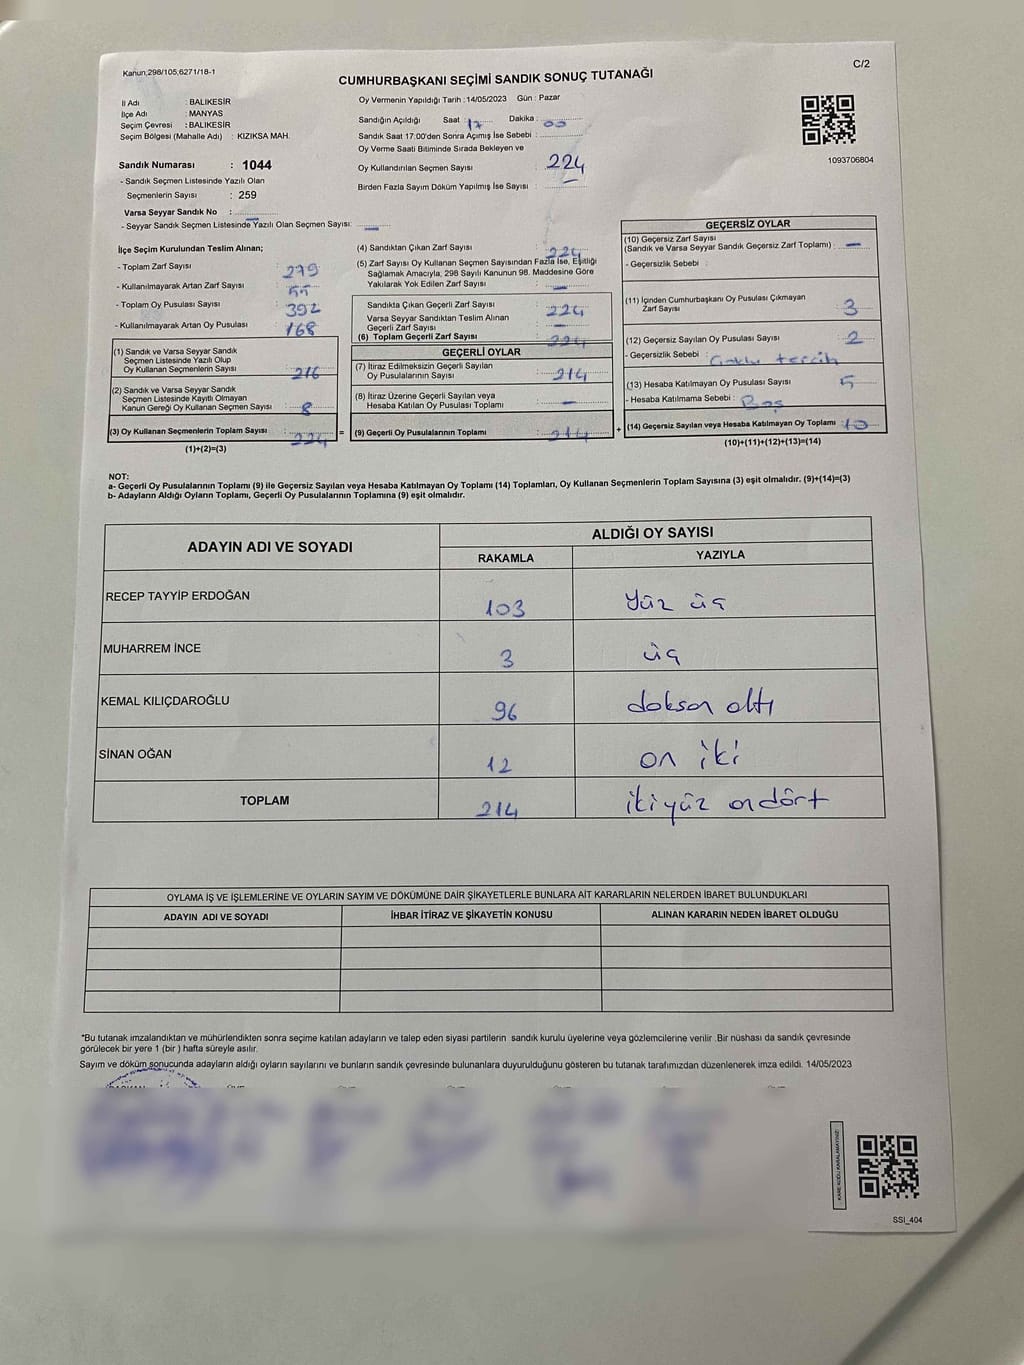 Kanun;298/105,6271/18-1
CUMHURBAŞKANI SEÇİMİ SANDIK SONUÇ TUTANAĞI
C/2
İl Adı : BALIKESİR
İlçe Adı : MANYAS
Seçim Çevresi : BALIKESİR
Seçim Bölgesi (Mahalle Adı) : KIZIKSA MAH.
Sandık Numarası : 1044
- Sandık Seçmen Listesinde Yazılı Olan
Seçmenlerin Sayısı : 259
Varsa Seyyar Sandık No :
- Seyyar Sandık Seçmen Listesinde Yazılı Olan Seçmen Sayısı: —
Oy Vermenin Yapıldığı Tarih :14/05/2023 Gün : Pazar
Sandığın Açıldığı Saat : 17 Dakika : 00
Sandık Saat 17:00'den Sonra Açımış İse Sebebi :
Oy Verme Saati Bitiminde Sırada Bekleyen ve
Oy Kullandırılan Seçmen Sayısı : 224
Birden Fazla Sayım Döküm Yapılmış İse Sayısı : —
1093706804
İlçe Seçim Kurulundan Teslim Alınan;
- Toplam Zarf Sayısı : 279
- Kullanılmayarak Artan Zarf Sayısı : 55
- Toplam Oy Pusulası Sayısı : 392
- Kullanılmayarak Artan Oy Pusulası : 168
(1) Sandık ve Varsa Seyyar Sandık
Seçmen Listesinde Yazılı Olup
Oy Kullanan Seçmenlerin Sayısı : 216
(2) Sandık ve Varsa Seyyar Sandık
Seçmen Listesinde Kayıtlı Olmayan
Kanun Gereği Oy Kullanan Seçmen Sayısı : 8
(3) Oy Kullanan Seçmenlerin Toplam Sayısı : 224 =
(1)+(2)=(3)
(4) Sandıktan Çıkan Zarf Sayısı : 224
(5) Zarf Sayısı Oy Kullanan Seçmen Sayısından Fazla İse, Eşitliği
Sağlamak Amacıyla; 298 Sayılı Kanunun 98. Maddesine Göre
Yakılarak Yok Edilen Zarf Sayısı : —
Sandıkta Çıkan Geçerli Zarf Sayısı : 224
Varsa Seyyar Sandıktan Teslim Alınan
Geçerli Zarf Sayısı : —
(6) Toplam Geçerli Zarf Sayısı : 224
GEÇERLİ OYLAR
(7) İtiraz Edilmeksizin Geçerli Sayılan
Oy Pusulalarının Sayısı : 214
(8) İtiraz Üzerine Geçerli Sayılan veya
Hesaba Katılan Oy Pusulası Toplamı : —
(9) Geçerli Oy Pusulalarının Toplamı : 214 +
GEÇERSİZ OYLAR
(10) Geçersiz Zarf Sayısı
(Sandık ve Varsa Seyyar Sandık Geçersiz Zarf Toplamı) : —
- Geçersizlik Sebebi :
(11) İçinden Cumhurbaşkanı Oy Pusulası Çıkmayan
Zarf Sayısı : 3
(12) Geçersiz Sayılan Oy Pusulası Sayısı : 2
- Geçersizlik Sebebi : Çoklu tercih
(13) Hesaba Katılmayan Oy Pusulası Sayısı : 5
- Hesaba Katılmama Sebebi : Boş
(14) Geçersiz Sayılan veya Hesaba Katılmayan Oy Toplamı : 10
(10)+(11)+(12)+(13)=(14)
NOT:
a- Geçerli Oy Pusulalarının Toplamı (9) ile Geçersiz Sayılan veya Hesaba Katılmayan Oy Toplamı (14) Toplamları, Oy Kullanan Seçmenlerin Toplam Sayısına (3) eşit olmalıdır. (9)+(14)=(3)
b- Adayların Aldığı Oyların Toplamı, Geçerli Oy Pusulalarının Toplamına (9) eşit olmalıdır.
ADAYIN ADI VE SOYADI ALDIĞI OY SAYISI
RAKAMLA YAZIYLA
RECEP TAYYİP ERDOĞAN 103 Yüz üç
MUHARREM İNCE 3 üç
KEMAL KILIÇDAROĞLU 96 doksan altı
SİNAN OĞAN 12 on iki
TOPLAM 214 ikiyüz ondört
OYLAMA İŞ VE İŞLEMLERİNE VE OYLARIN SAYIM VE DÖKÜMÜNE DAİR ŞİKAYETLERLE BUNLARA AİT KARARLARIN NELERDEN İBARET BULUNDUKLARI
ADAYIN ADI VE SOYADI İHBAR İTİRAZ VE ŞİKAYETİN KONUSU ALINAN KARARIN NEDEN İBARET OLDUĞU
*Bu tutanak imzalandıktan ve mühürlendikten sonra seçime katılan adayların ve talep eden siyasi partilerin sandık kurulu üyelerine veya gözlemcilerine verilir .Bir nüshası da sandık çevresinde
görülecek bir yere 1 (bir ) hafta süreyle asılır.
Sayım ve döküm sonucunda adayların aldığı oyların sayılarını ve bunların sandık çevresinde bulunanlara duyurulduğunu gösteren bu tutanak tarafımızdan düzenlenerek imza edildi. 14/05/2023
KARE KODU KARALAMAYINIZ!
SSI_404